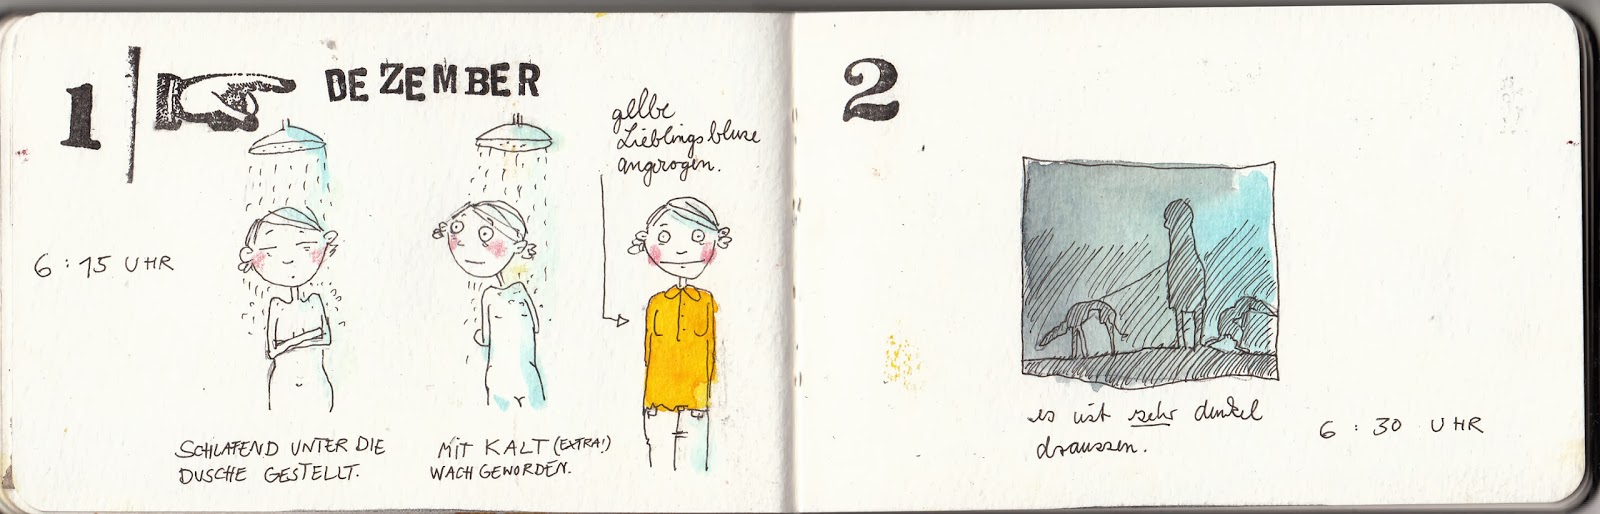 1 | DEZEMBER
6:15 UHR
SCHLAFEND UNTER DIE
DUSCHE GESTELLT.
MIT KALT (EXTRA!)
WACH GEWORDEN.
gelbe
Lieblingsbluse
angezogen.
2
es ist sehr dunkel
draussen.
6:30 UHR